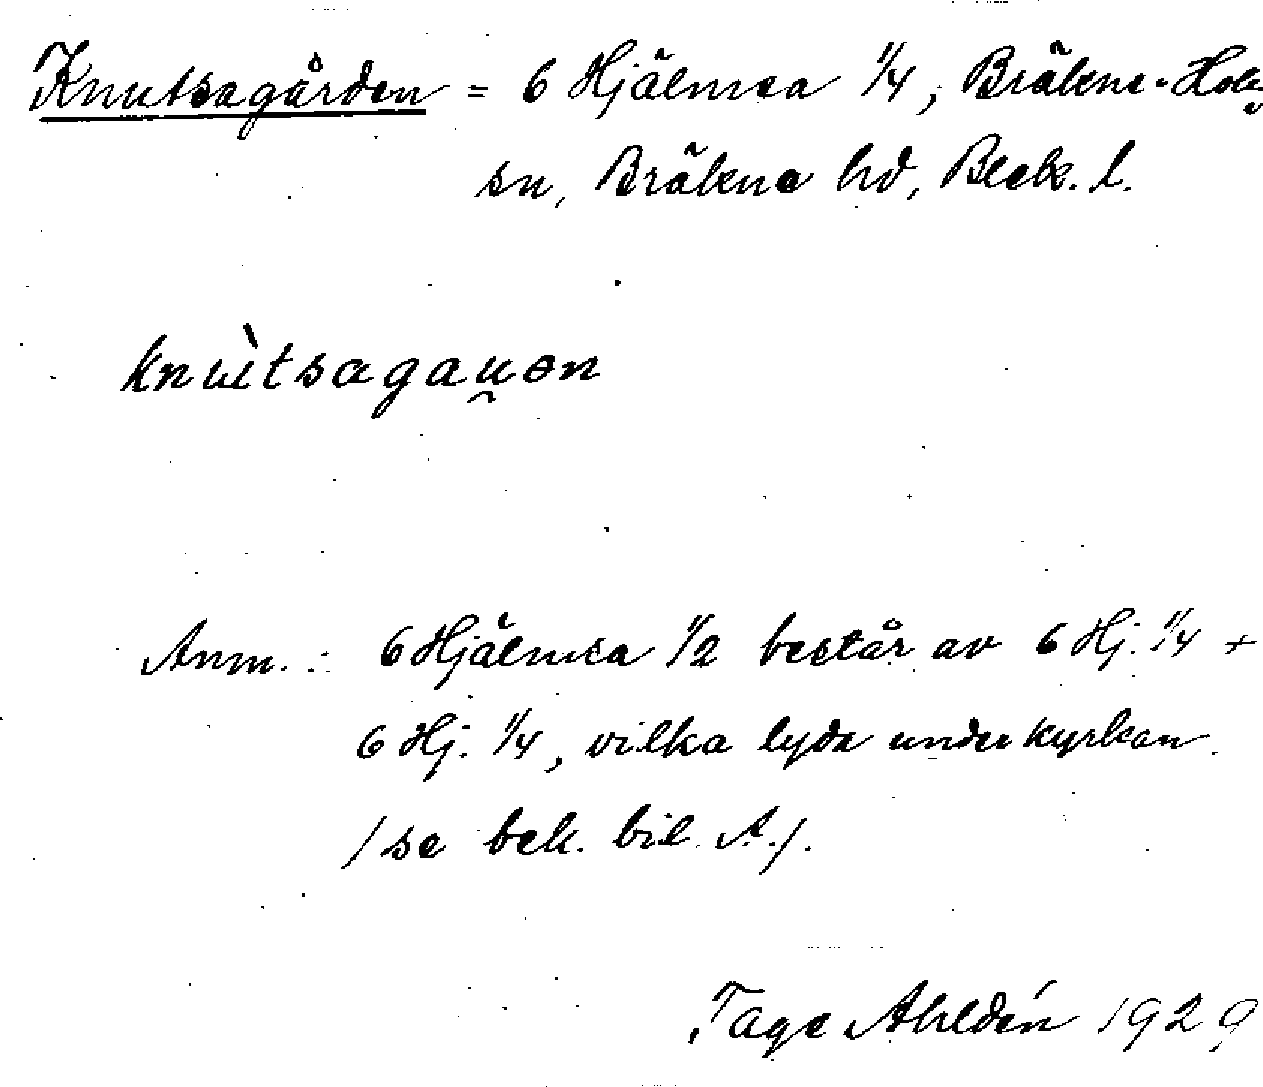 Knutsagården = 6 Hjälmsa 1/4, Bräkne-Hoby
sn, Bräkne hd, Blek. l.
knùtsagau̯ən
Anm. : 6 Hjälmsa 1/2 består av 6 Hj. 1/4 +
6 Hj. 1/4, vilka lyda under kyrkan.
/se bek. bil. A./.
Tage Ahldén 1929